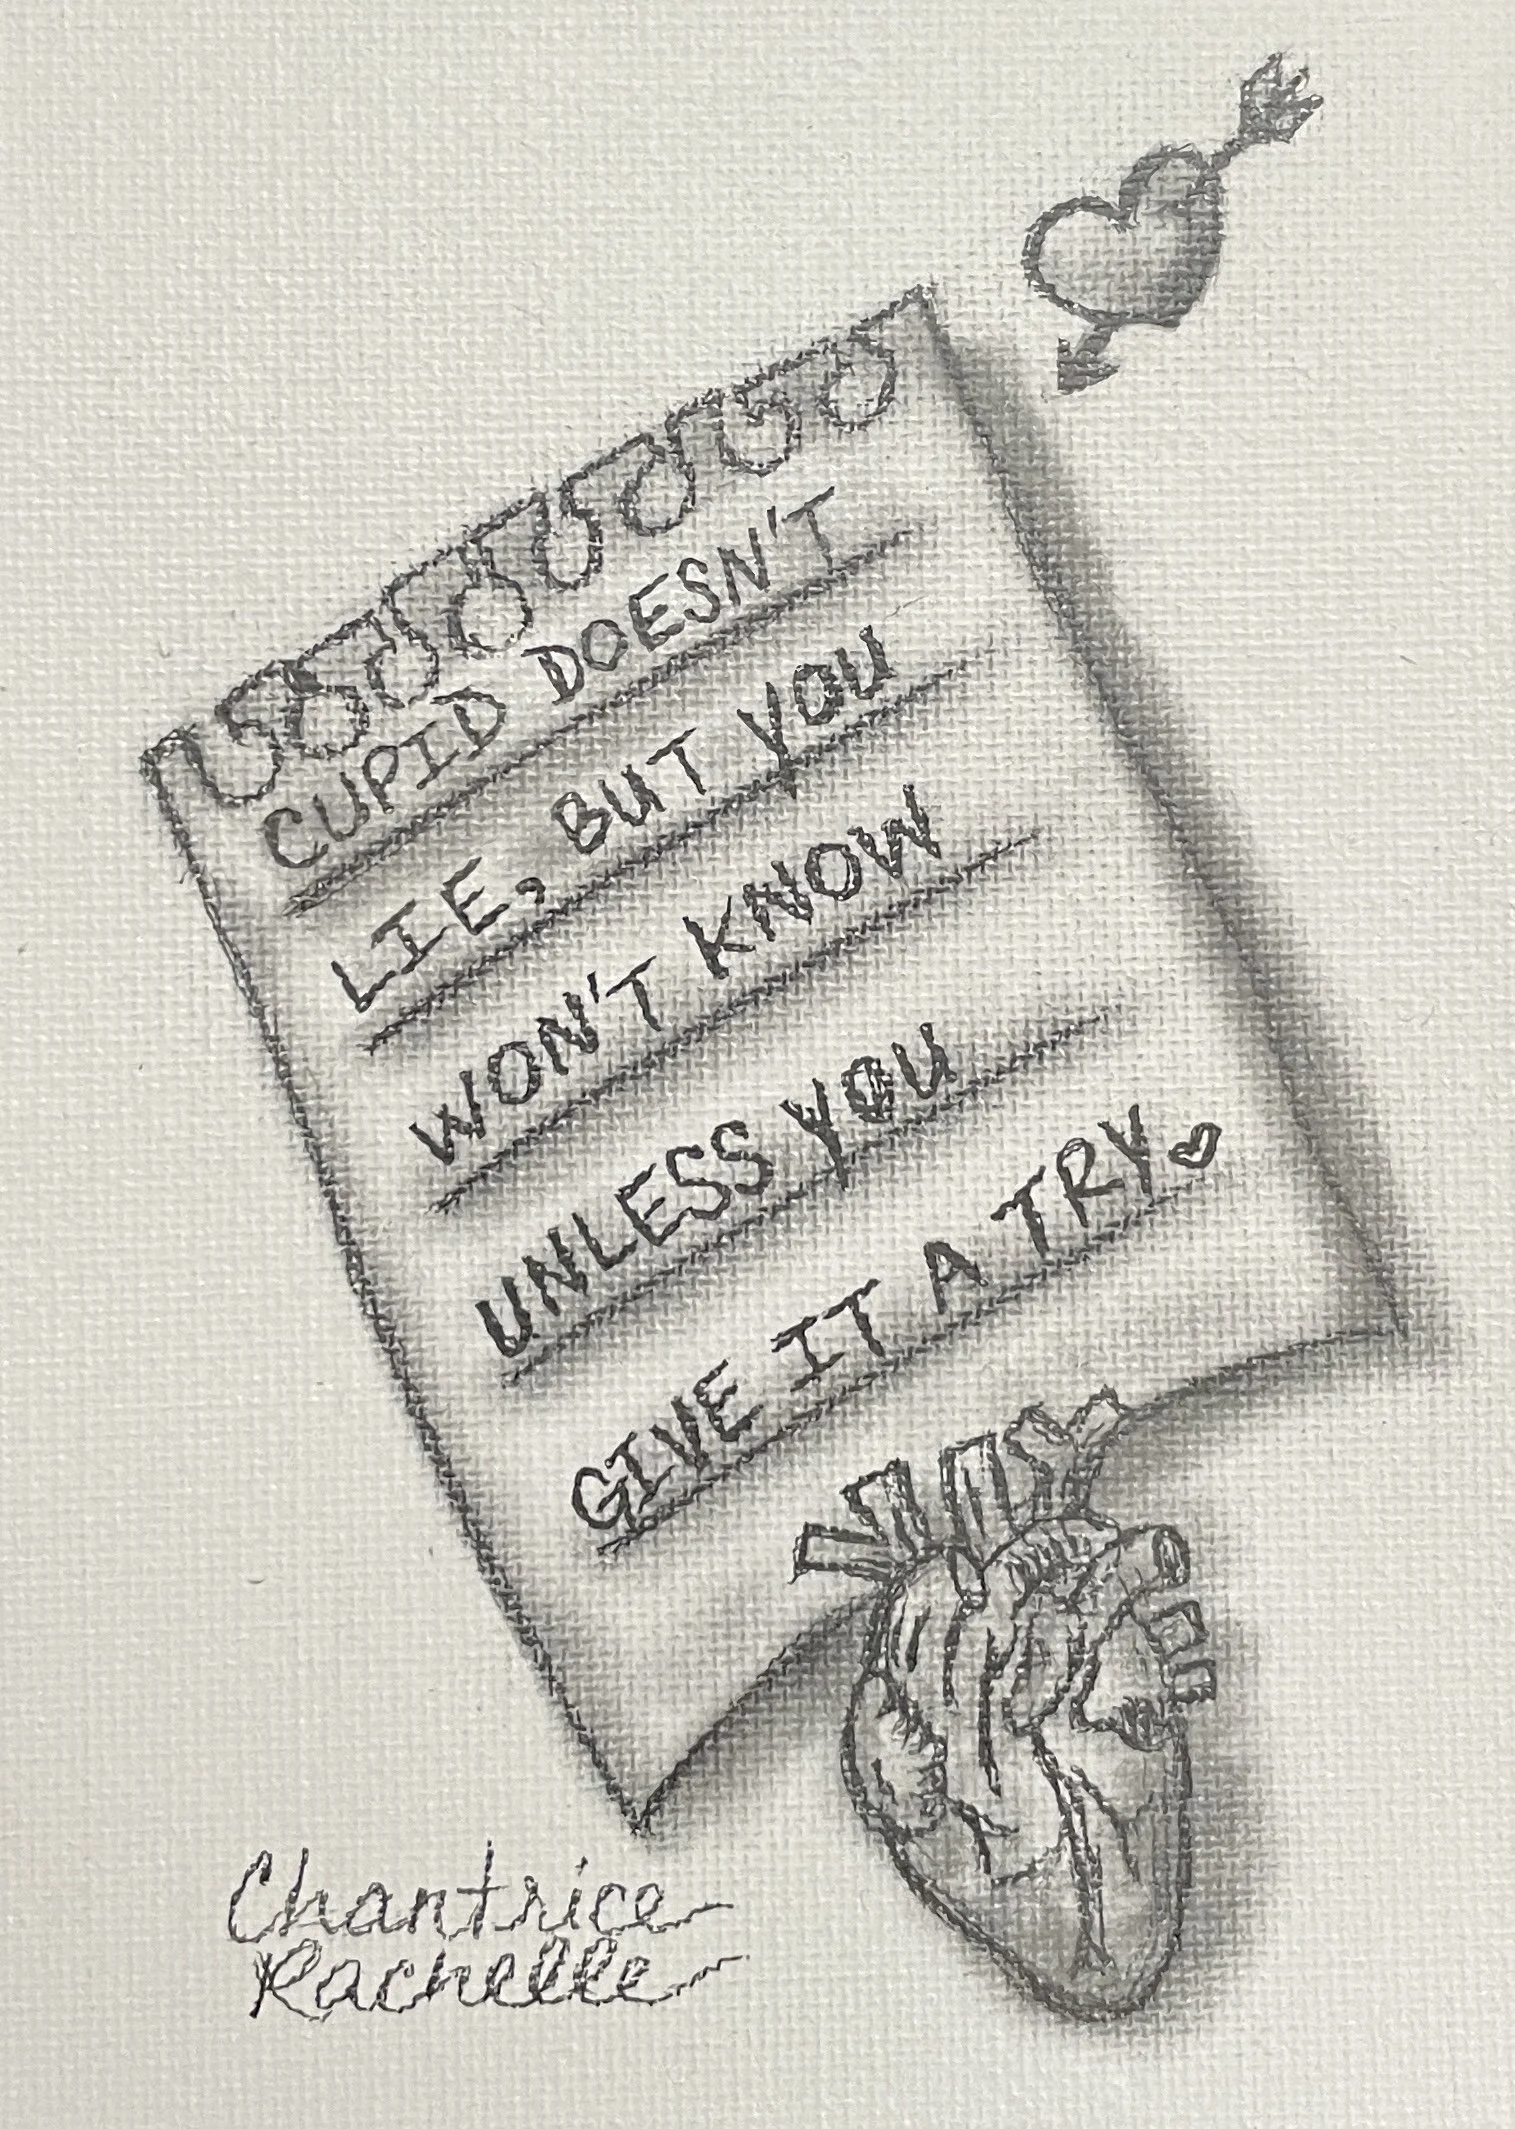 CUPID DOESN'T
LIE, BUT YOU
WON'T KNOW
UNLESS YOU
GIVE IT A TRY
Chantrice
Rachelle